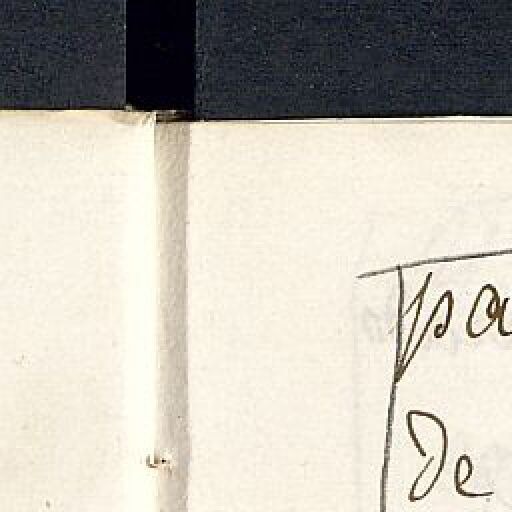 pa
De